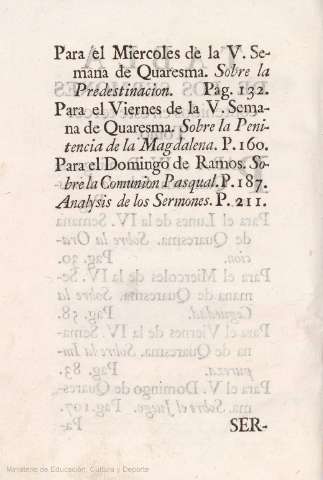 Para el Miercoles de la V. Se-
mana de Quaresma. Sobre la
Predestinacion. Pag. 132.
Para el Viernes de la V. Sema-
na de Quaresma. Sobre la Peni-
tencia de la Magdalena. P. 160.
Para el Domingo de Ramos. So-
bre la Comunion Pasqual. P. 187.
Analysis de los Sermones. P. 211.
SER-
Ministerio de Educación, Cultura y Deporte